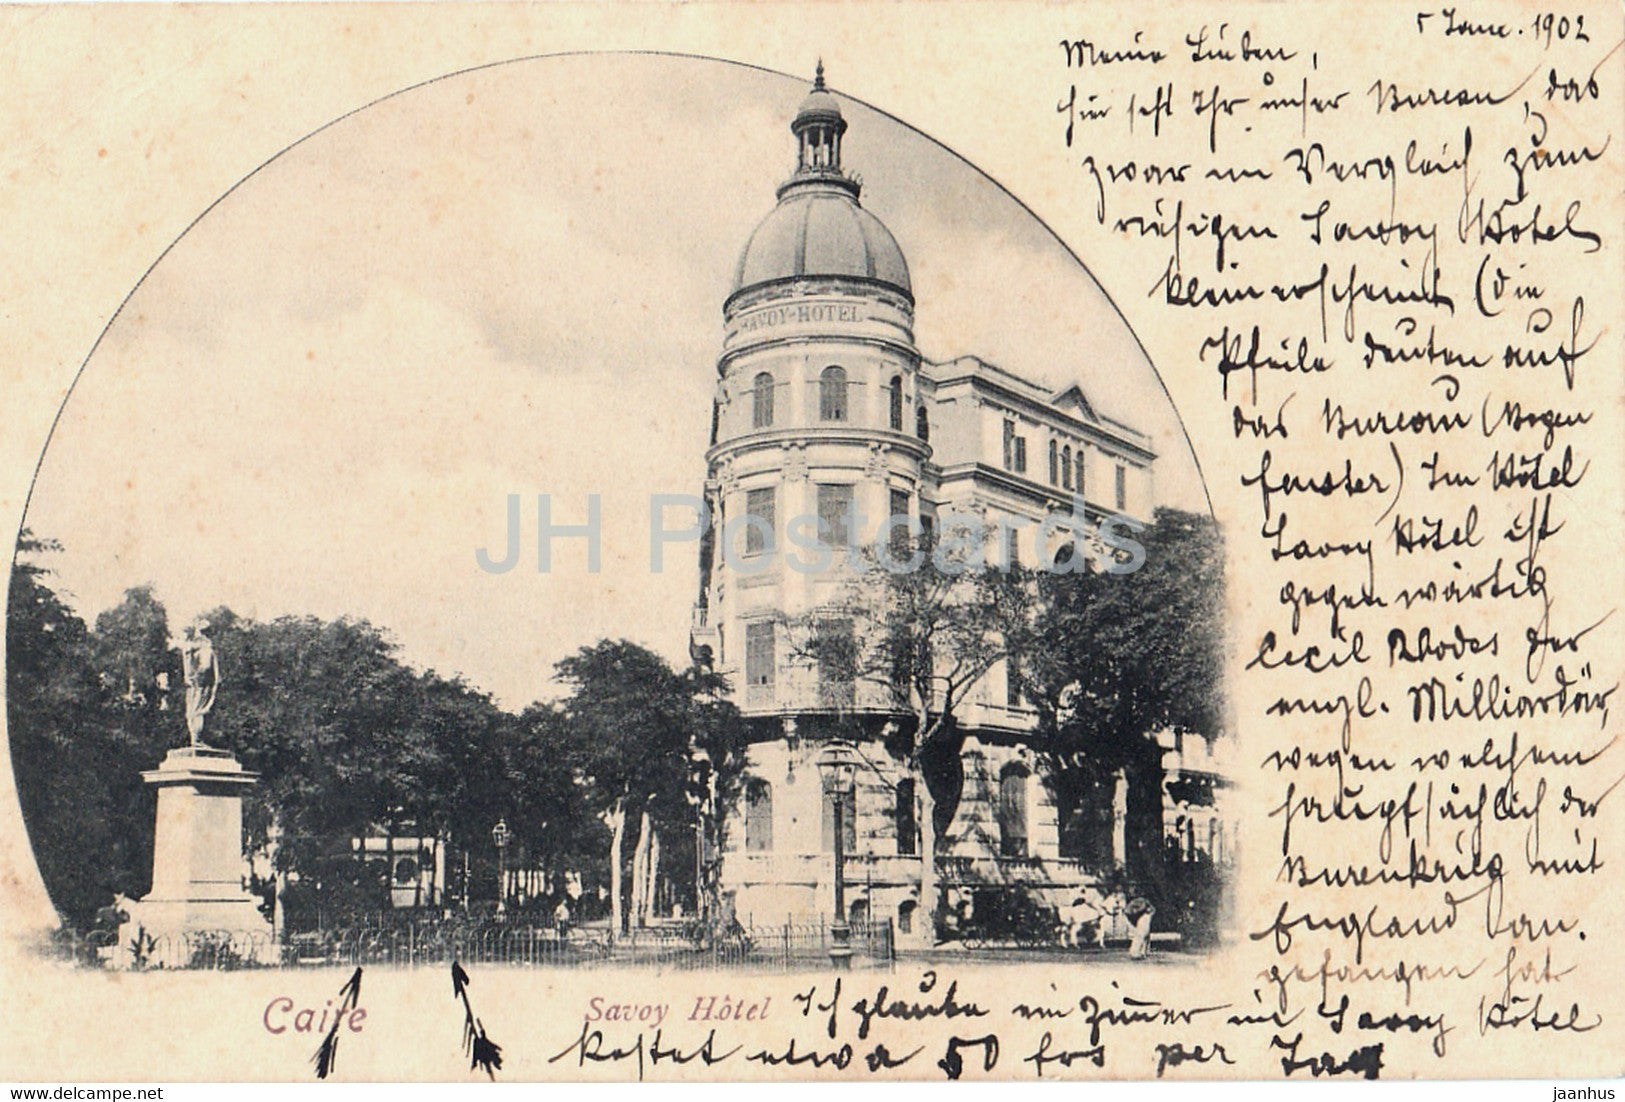 5 Jane. 1902
Meine Lieben,
hier seht Ihr unser Bureau, das
zwar im Vergleich zum
riesigen Savoy Hôtel
klein erscheint (die
Pfeile deuten auf
das Bureau (Bogen
fenster) Im Hôtel
Savoy Hôtel ist
gegenwärtig
Cecil Rhodes der
engl. Milliardär,
wegen welchem
hauptsächlich der
Burenkrieg mit
England an.
gefangen hat
Ich glaube ein Zimmer im Savoy Hôtel
kostet etwa 50 frs per Tag
SAVOY-HOTEL
Caire
Savoy Hôtel
JH Postcards
www.delcampe.net
jaanhus